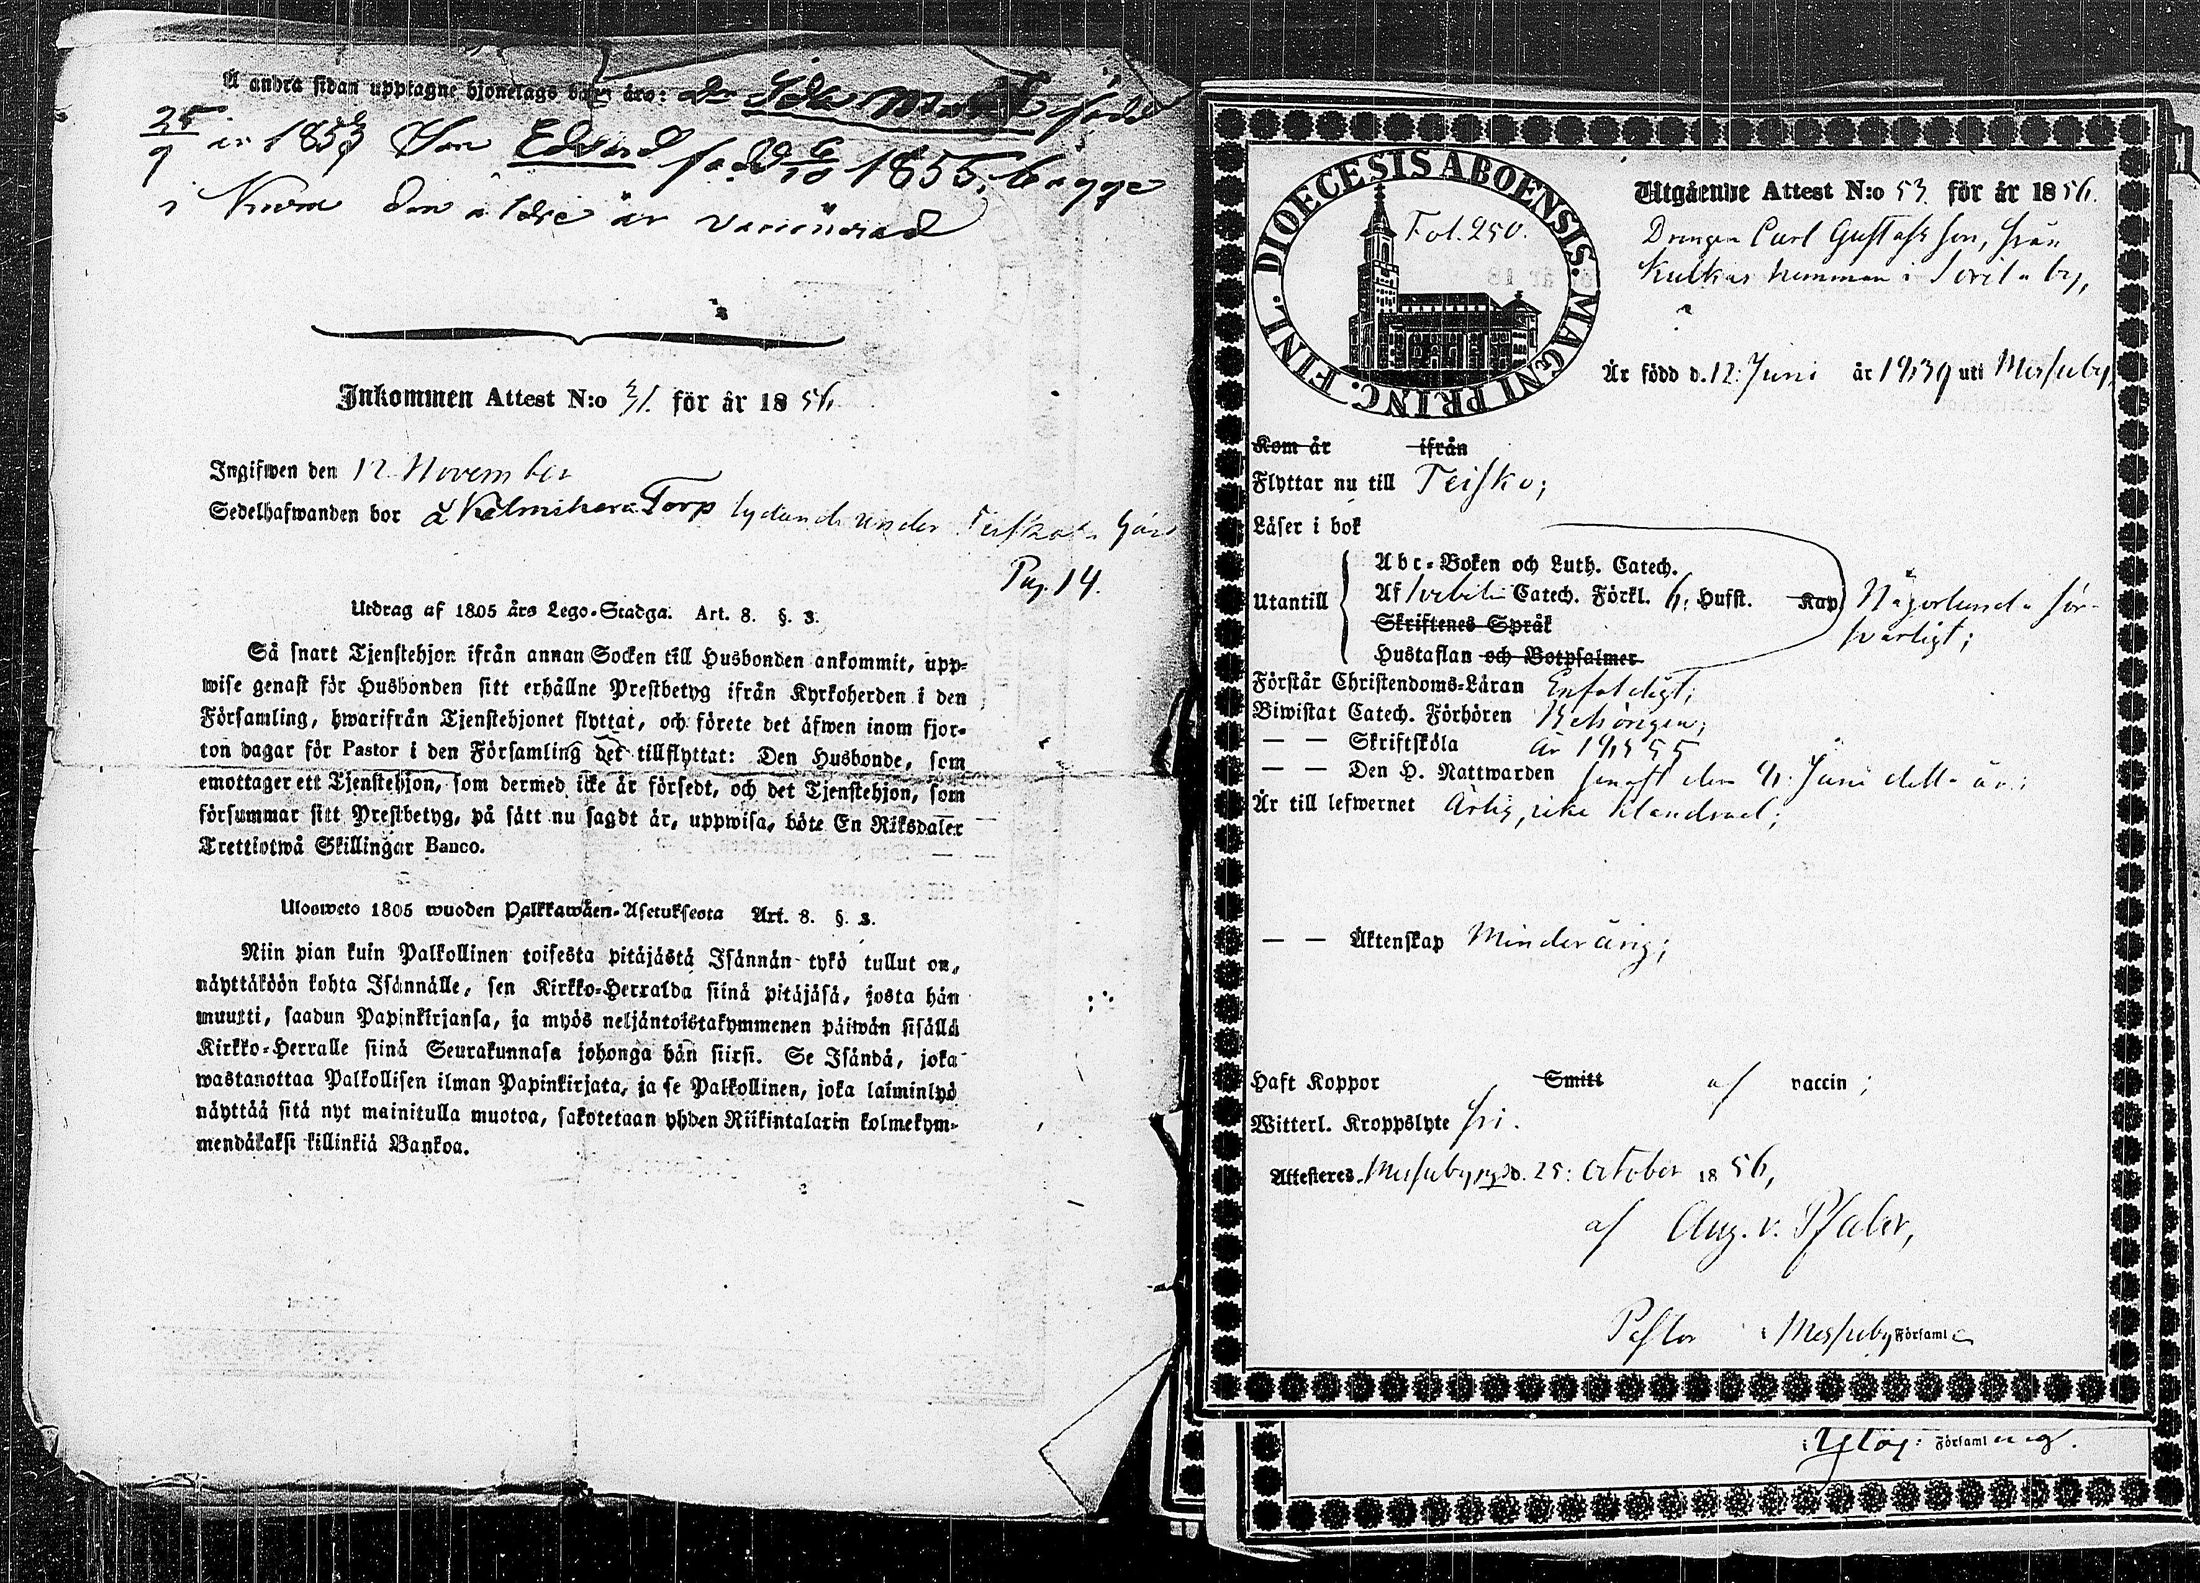 Å andra sidan upptagne hjonelags barn äro: Dr Ida född
25/9 in 1853 Son Edvard född 6/10 1855. bägge
i Kuru den äldre är vaccinerad
Inkommen Attest N:o 31. för år 1856
Ingifwen den 12 November
Sedelhafwanden bor å Torp lydande under Gård
Pag. 14.
Utdrag af 1805 års Lego-Stadga. Art. 8. §. 3.
Så snart Tjenstehjon ifrån annan Socken till Husbonden ankommit, upp-
wise genast för Husbonden sitt erhållne Prestbetyg ifrån Kyrkoherden i den
Församling, hwarifrån Tjenstehjonet flyttat, och förete det äfwen inom fjor-
ton dagar för Pastor i den Församling det tillflyttat: Den Husbonde, som
emottager ett Tjenstehjon, som dermed icke är försedt, och det Tjenstehjon, som
försummar sitt Prestbetyg, på sätt nu sagdt är, uppwisa, böte En Riksdaler
Trettiotwå Skillingar Banco.
Ulosweto 1805 wuoden Palkkawäen-Asetuksesta Art. 8. §. 3.
Niin pian kuin Palkollinen toisesta pitäjästä Isännän tykö tullut on,
näyttäköön kohta Isännälle, sen Kirkko-Herralda siinä pitäjäsä, josta hän
muutti, saadun Papinkirjansa, ja myös neljäntoistakymmenen päiwän sisällä
Kirkko-Herralle siinä Seurakunnasa johonga hän siirsi. Se Isändä, joka
wastanottaa Palkollisen ilman Papinkirjata, ja se Palkollinen, joka laiminlyö
näyttää sitä nyt mainitulla muotoa, sakotetaan yhden Riikintalarin kolmekym-
mendäkaksi killinkiä Bankoa.
FINL. DIOECESIS ABOENSIS. MAGNI PRINC.
Fol. 250.
Utgående Attest N:o 53. för år 1856.
Drängen Carl Gustafsson, från
Kulkas hemman i Sorila by,
Är född d. 12: Juni år 1839 uti Messuby,
Kom år ifrån
Flyttar nu till Teisko;
Läser i bok
Utantill
Abc-Boken och Luth. Catech.
Af Svebilii Catech. Förkl. 6. Hufst. Kap
Skriftenes Språk
Hustaflan och Botpsalmer
Någorlunda för-
svarligt;
Förstår Christendoms-Läran Enfaldigt;
Biwistat Catech. Förhören Behörigen;
— — Skriftskola år 1855
— — Den H. Nattwarden senast den Juni detta år;
Är till lefwernet Ärlig, icke klandrad;
— — Äktenskap Minderårig;
Haft Koppor Smitt af vaccin;
Witterl. Kroppslyte fri.
Attesteres. Messuby pgd. d. 25: October 1856,
af Aug. v. Pfaler,
Pastor i Messuby Församl
i Församling.